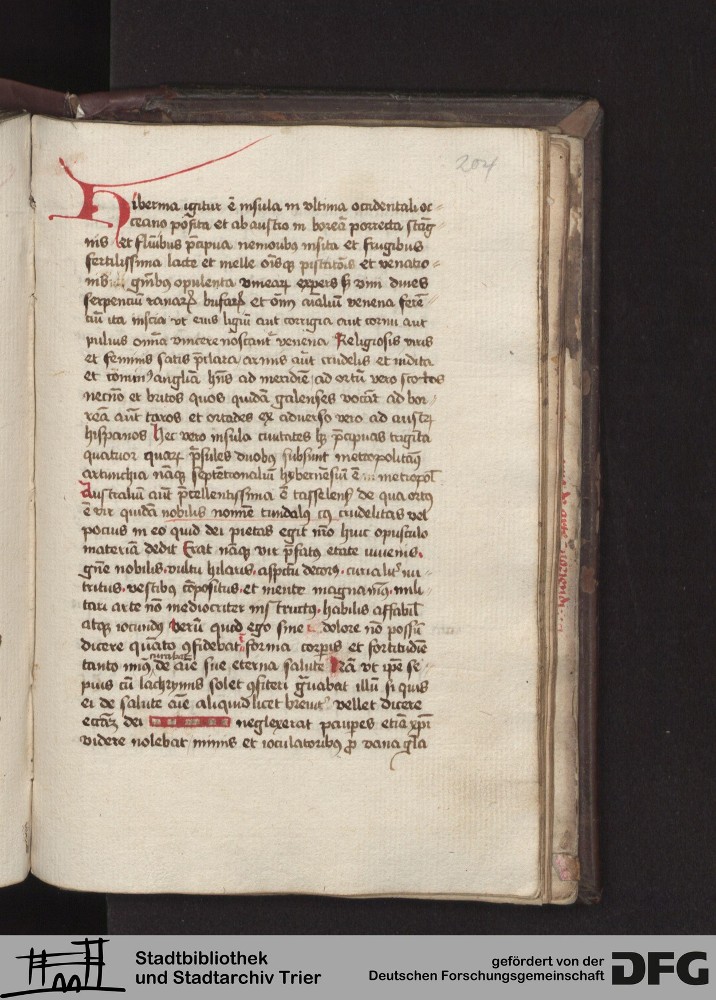 204
Hibernia igitur ē insula in vltima occidentali oc-
ceano posita et ab austro in boreā porrecta stag-
nis et fluuibus p̄cipua nemoribus insita et frugibus
fertilissima lacte et melle oīsq3 pistatōīs et venatio-
nibus opulenta vinearū expers s3 vini diues
serpentiū ranarū bufarū et oīm aīaliū venena ferē-
tiū ita inscia vt eius lignū aut corrigia aut cornu aut
puluis omnia vincere noscant᷑ venena Religiosis viris
et feminis satis p̄clara armis aūt crudelis et indita
et cōminꝰ angliā hn̄s ad meridiē ad ortū vero scottos
necnō et britos quos quidā galenses vocāt ad bor-
reā aūt taxos et ortades ex aduerso vero ad austrū
hispanos hec vero insula ciuitates h3 p̄cipuas triginta
quatuor quarū p̄sules duobus subsunt metropolitanis
artinchia nāq3 septentrionaliū hyberniēsiū ē metropol
Australiū aūt p̄cellentissima ē casselensꝭ de qua ortꝰ
ē vir quidā nobilis nomine tundalꝰ cꝰ crudelitas vel
pocius in eo quid dei pietas egit nr̄o huic opusculo
materiā dedit Erat nāq3 vir p̄fatꝰ etate iuuenis.
gn̄e nobilis. vultu hilaris. aspectu decorꝰ. curialit᷑ nu-
tritus. vestibꝰ cōpositus. et mente magnanimꝰ. mili-
tari arte nō mediocriter instructus. habilis affabil
atq3 iocundꝰ verū quod ego sine dolore nō possū
dicere quāto ꝯfidebat forma corpis et fortitudie
tanto minꝰ curabat de aīe sue eterna salute Nā vt ipse se-
pius cū lachrymis solet ꝯfiteri grauabat illū si quis
ei de salute aīe aliquid licet breuit᷑ vellet dicere
ecclīaz dei neglexerat paupes etiā xpī
videre nolebat mimis et ioculatoribꝰ ꝓ vana gl̄a
Stadtbibliothek
und Stadtarchiv Trier
gefördert von der
Deutschen Forschungsgemeinschaft
DFG